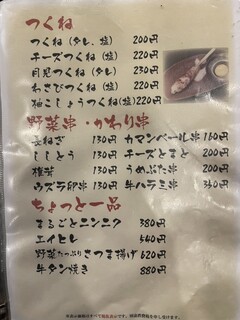 つくね
つくね (タレ、塩) 200円
チーズつくね (塩) 220円
月見つくね (タレ) 230円
わさびつくね (塩) 220円
柚こしょうつくね (塩) 220円
野菜串・かわり串
長ねぎ 130円 カマンベール串 160円
ししとう 130円 チーズとまと 200円
椎茸 130円 うめぶた串 200円
ウズラ卵串 130円 牛ハラミ串 340円
ちょっと一品
まるごとニンニク 380円
エイヒレ 540円
野菜たっぷりさつま揚げ 620円
牛タン焼き 880円